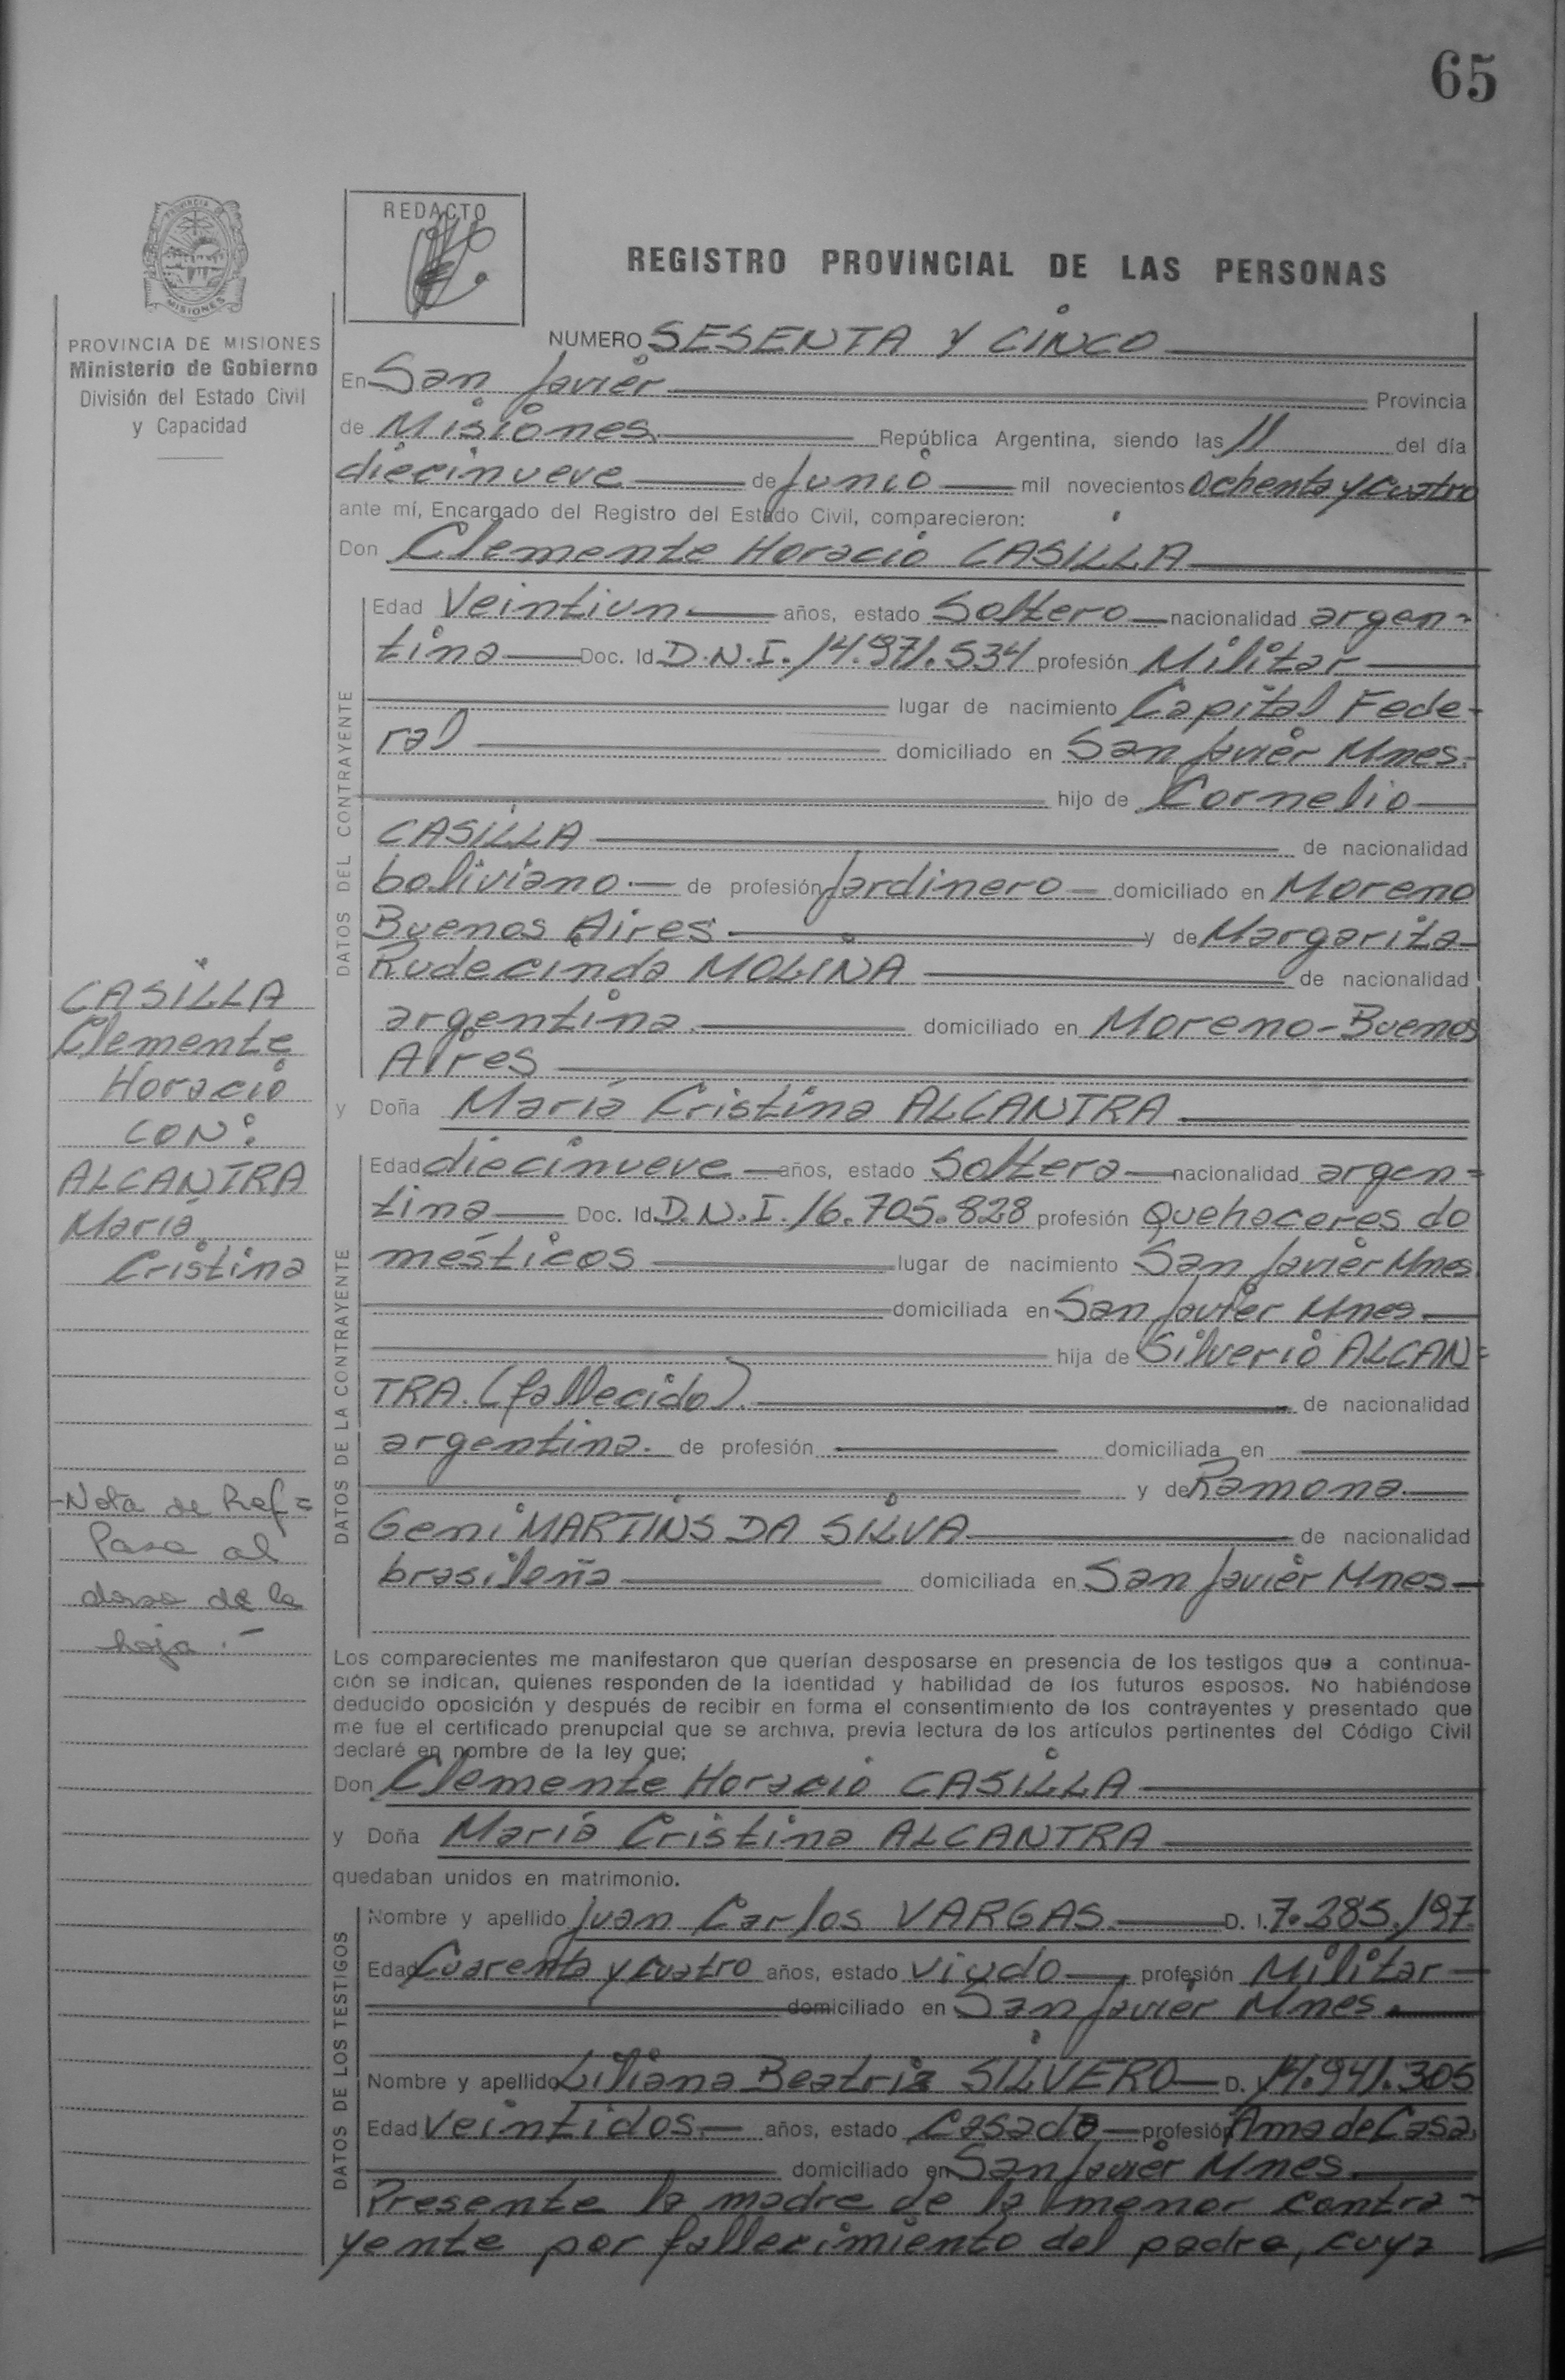 65
PROVINCIA DE
MISIONES
PROVINCIA DE MISIONES
Ministerio de Gobierno
División del Estado Civil
y Capacidad
REDACTO
REGISTRO PROVINCIAL DE LAS PERSONAS
NUMERO SESENTA Y CINCO
En San Javier Provincia
de Misiones República Argentina, siendo las 11 del día
diecinueve de Junio mil novecientos ochenta y cuatro
ante mí, Encargado del Registro del Estado Civil, comparecieron:
Don Clemente Horacio CASILLA
DATOS DEL CONTRAYENTE
Edad Veintiun años, estado Soltero nacionalidad argen=
tina Doc. Id D.N.I. 14.971.534 profesión Militar
lugar de nacimiento Capital Fede-
ral domiciliado en San Javier Mnes.
hijo de Cornelio
CASILLA de nacionalidad
boliviano.- de profesión Jardinero domiciliado en Moreno
Buenos Aires y de Margarita
Rudecinda MOLINA de nacionalidad
argentina domiciliado en Moreno-Buenos
Aires
y Doña María Cristina ALCANTRA
DATOS DE LA CONTRAYENTE
Edad diecinueve años, estado Soltera nacionalidad argen=
tina Doc. Id D.N.I. 16.705.828 profesión Quehaceres do
mésticos lugar de nacimiento San Javier Mnes.
domiciliada en San Javier Mnes
hija de Silverio ALCAN=
TRA. (fallecido). de nacionalidad
argentina. de profesión domiciliada en
y de Ramona
Geni MARTINS DA SILVA de nacionalidad
brasileña domiciliada en San Javier Mnes
Los comparecientes me manifestaron que querían desposarse en presencia de los testigos que a continua-
ción se indican, quienes responden de la identidad y habilidad de los futuros esposos. No habiéndose
deducido oposición y después de recibir en forma el consentimiento de los contrayentes y presentado que
me fue el certificado prenupcial que se archiva, previa lectura de los artículos pertinentes del Código Civil
declaré en nombre de la ley que;
Don Clemente Horacio CASILLA
y Doña María Cristina ALCANTRA
quedaban unidos en matrimonio.
DATOS DE LOS TESTIGOS
Nombre y apellido Juan Carlos VARGAS D. I. 7.285.197
Edad Cuarenta y cuatro años, estado viudo profesión Militar
domiciliado en San Javier Mnes.
Nombre y apellido Liliana Beatriz SILVERO D. I. 14.941.305
Edad Veintidos.- años, estado Casada profesión Ama de Casa
domiciliado en San Javier Mnes
Presente la madre de la menor contra-
yente por fallecimiento del padre, cuya
CASILLA
Clemente
Horacio
CON:
ALCANTRA
María
Cristina
-Nota de Ref=
Pasa al
dorso de la
hoja.-